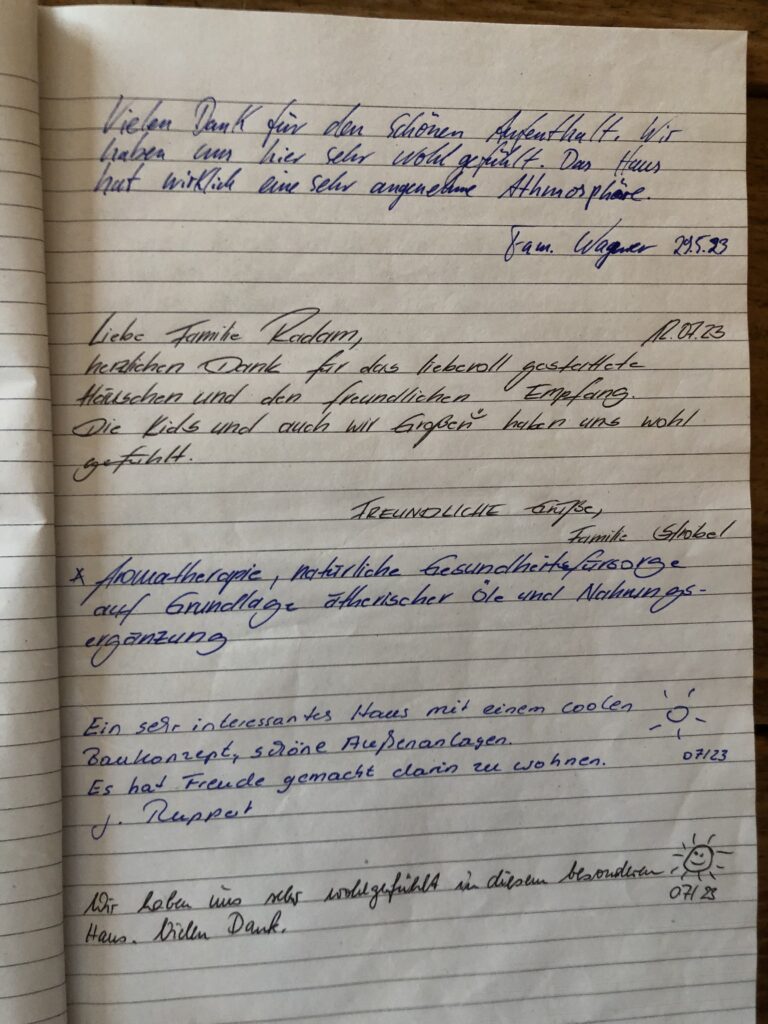 Vielen Dank für den schönen Aufenthalt. Wir
haben uns hier sehr wohl gefühlt. Das Haus
hat wirklich eine sehr angenehme Athmosphäre.
Fam. Wagner 29.5.23
Liebe Familie Radam, 12.07.23
herzlichen Dank für das liebevoll gestaltete
Häuschen und den freundlichen Empfang.
Die Kids und auch wir "Großen" haben uns wohl
gefühlt.
FREUNDLICHE Grüße,
Familie Strobel
* Aromatherapie, natürliche Gesundheitsfürsorge
auf Grundlage ätherischer Öle und Nahrungs-
ergänzung
Ein sehr interessantes Haus mit einem coolen
Baukonzept, schöne Außenanlagen. 07/23
Es hat Freude gemacht darin zu wohnen.
J. Ruppert
Wir haben uns sehr wohlgefühlt in diesem besonderen 07/23
Haus. Vielen Dank.